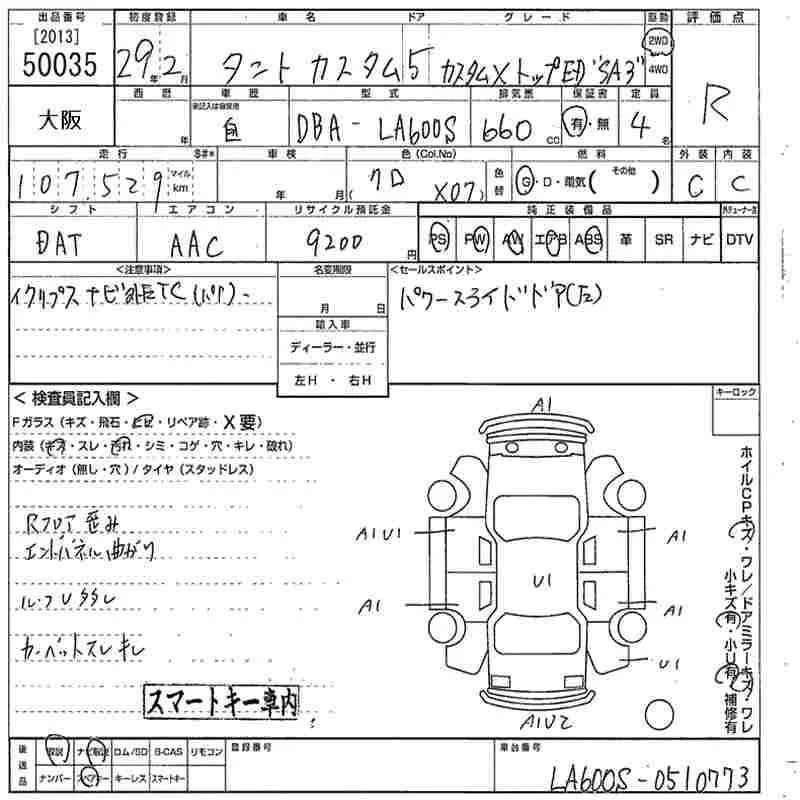 出品番号 初度登録 車名 ドア グレード 駆動 評価点
[2013]
50035 29年 2月 タント カスタム 5 カスタムX トップED "SA3" 2WD 4WD R
大阪 西暦 年 車歴 未記入は自家用 自 型式 DBA - LA600S 排気票 660 cc 保証書 有・無 定員 4名
走行 107,529 マイル km S#* 車検 年 月 色(Col.No) クロ (X07) 色替 燃料 G・D・電気( その他 ) 外装 C 内装 C
シフト エアコン リサイクル預託金 純正装備品
DAT AAC 9200円 PS PW AW エアB ABS 革 SR ナビ DTV
<注意事項> 名変期限 <セールスポイント>
イクリプス ナビ 月 日 パワースライドドア(左)
輸入車
ディーラー・並行
左H ・ 右H
< 検査員記入欄 > キーロック
Fガラス(キズ・飛石・ヒビ・リペア跡・X要)
内装(キズ・スレ・汚れ・シミ・コゲ・穴・キレ・破れ)
オーディオ(無し・穴)/タイヤ(スタッドレス)
Rフロア歪み
エンドパネル曲がり
カーペットスレキレ
スマートキー車内
A1
A1U1 A1
U1
A1 A1
U1
A1U2
ホイルCPキズ・ワレ/ドアミラーキズ・ワレ
小キズ有・小U有・補修有
後送品 取説 ナビ取説 ロム/SD B-CAS リモコン 登録番号 車台番号
ナンバー スペアキー キーレス スマートキー LA600S-0510773